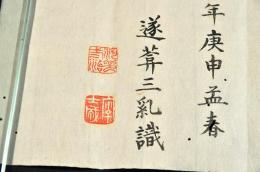 年庚申孟春
遂葊三乳識